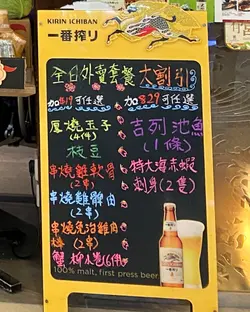 KIRIN ICHIBAN
一番搾り
全日外賣套餐 大割引
加$19可任選 加$29可任選
厚燒玉子
(4件)
枝豆
串燒雞軟骨
(2串)
串燒雞髀肉
(2串)
串燒免治雞肉
棒 (2串)
蟹柳小卷(6件)
吉列池魚
(1條)
特大海赤蝦
刺身(2隻)
100% malt, first press beer